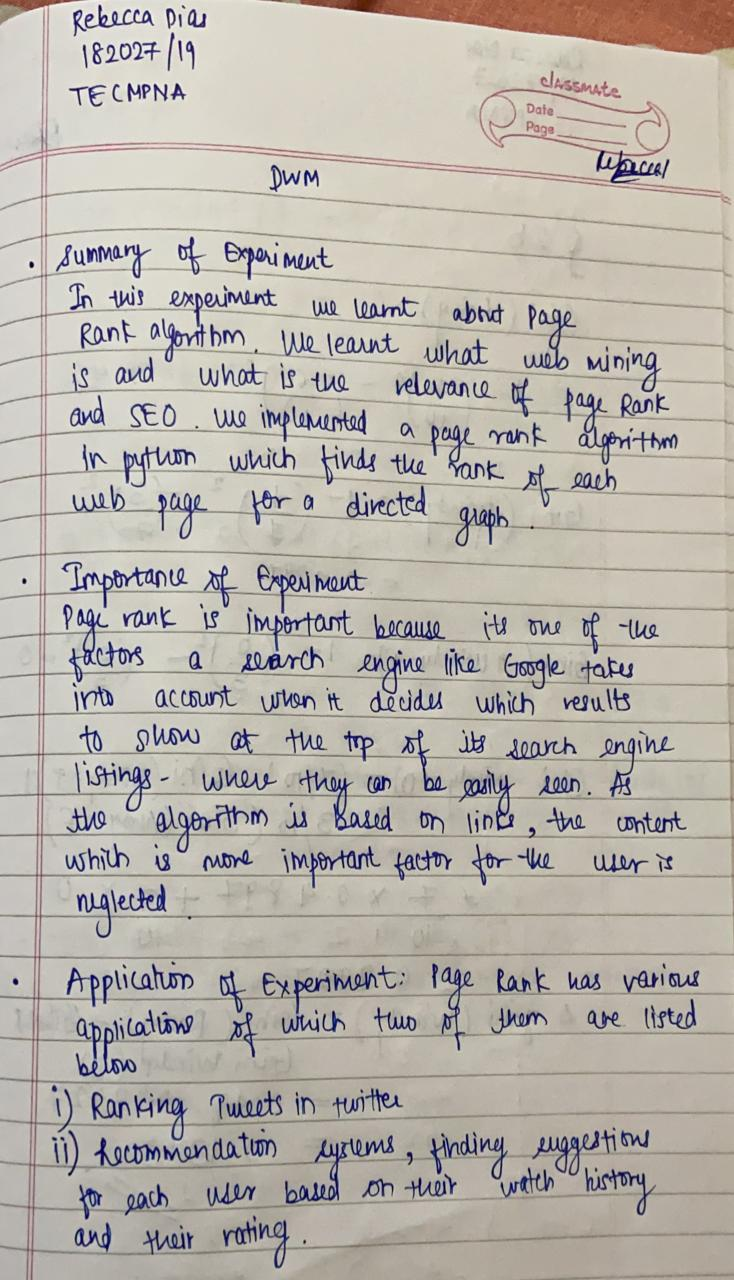 Rebecca Dias
182027/19
TECMPNA
classmate
Date
Page
DWM
. Summary of Experiment
In this experiment we learnt about Page
Rank algorithm. We learnt what web mining
is and what is the relevance of Page Rank
and SEO. We implemented a page rank algorithm
In python which finds the rank of each
web page for a directed graph.
. Importance of Experiment
Page rank is important because its one of the
factors a search engine like Google takes
into account when it decides which results
to show at the top of its search engine
listings - where they can be easily seen. As
the algorithm is based on links, the content
which is more important factor for the user is
neglected.
. Application of Experiment: Page Rank has various
applications of which two of them are listed
below
i) Ranking Tweets in twitter
ii) Recommendation systems, finding suggestions
for each user based on their watch history
and their rating.